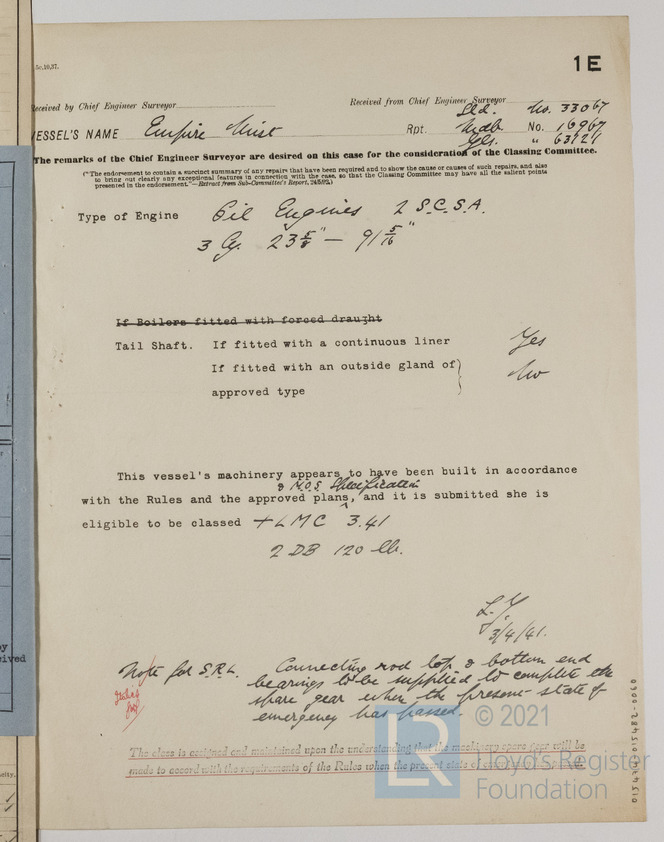 5c,10,37.
1E
Received by Chief Engineer Surveyor
Received from Chief Engineer Surveyor
Sld. No. 33067
VESSEL'S NAME Empire Mist Rpt. Mdb. No. 16967
Gls. " 63721
The remarks of the Chief Engineer Surveyor are desired on this case for the consideration of the Classing Committee.
("The endorsement to contain a succinct summary of any repairs that have been required and to show the cause or causes of such repairs, and also
to bring out clearly any exceptional features in connection with the case, so that the Classing Committee may have all the salient points
presented in the endorsement."—Extract from Sub-Committee's Report, 24/5/92.)
Type of Engine Oil Engines 2 S.C.S.A.
3 Cy. 23 5/8" — 91 5/16"
If Boilers fitted with forced draught
Tail Shaft. If fitted with a continuous liner Yes
If fitted with an outside gland of} No
approved type
This vessel's machinery appears to have been built in accordance
& M.O.S Specification
with the Rules and the approved plans, and it is submitted she is
eligible to be classed +LMC 3.41
2 DB 120 lb.
3/4/41.
Note for S.R.L. Connecting rod top & bottom end
bearings to be supplied to complete the
spare gear when the present state of
emergency has passed.
The class is assigned and maintained upon the understanding that the machinery spare gear will be
made to accord with the requirements of the Rules when the present state of emergency has passed.
© 2021
LR
Lloyd's Register
Foundation